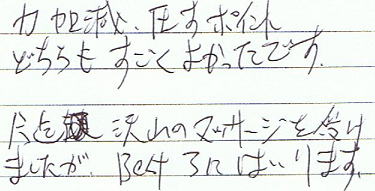 力加減、圧すポイント
どちらもすごくよかったです。
今迄沢山のマッサージを受け
ましたが、Best 3にはいります。